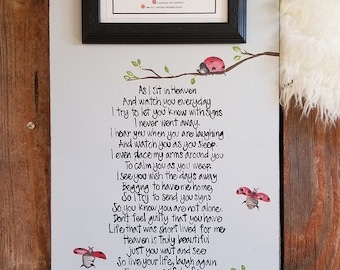 As I sit in Heaven
And watch you everyday
I try to let you know with signs
I never went away.
I hear you when you are laughing
And watch you as you sleep.
I even place my arms around you
To calm you as you weep.
I see you wish the days away
Begging to have me home,
So I try to send you signs
So you know you are not alone.
Don't feel guilty that you have
Life that was short lived for me
Heaven is truly beautiful
Just you wait and see
So live your life, laugh again